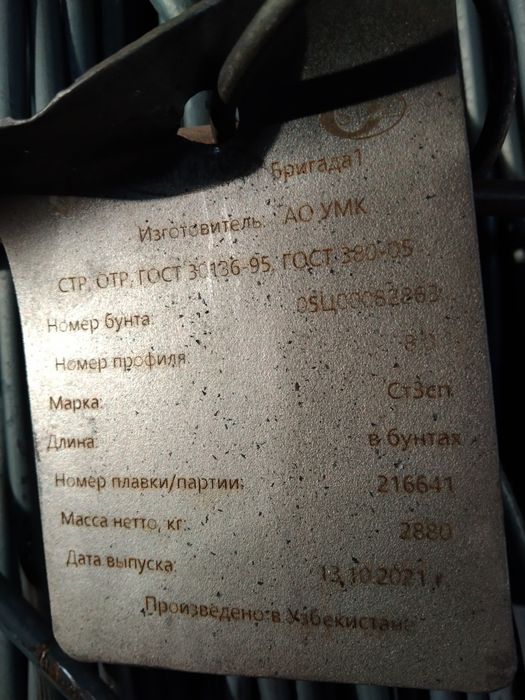 Бригада1
Изготовитель: АО УМК
СТР, ОТР, ГОСТ 30136-95, ГОСТ 380-05
Номер бунта: 05Ц00062863
Номер профиля:
Марка: Ст3сп
Длина: в бунтах
Номер плавки/партии: 216641
Масса нетто, кг: 2880
Дата выпуска: 13.10.2021 г.
Произведено в Узбекистане